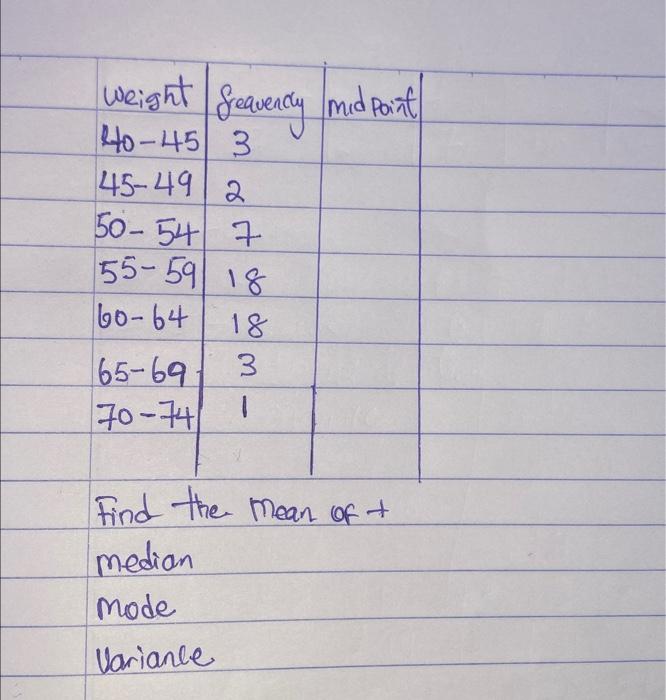 weight frequency mid point
40-45 3
45-49 2
50-54 7
55-59 18
60-64 18
65-69 3
70-74 1
Find the mean of +
median
mode
Variance